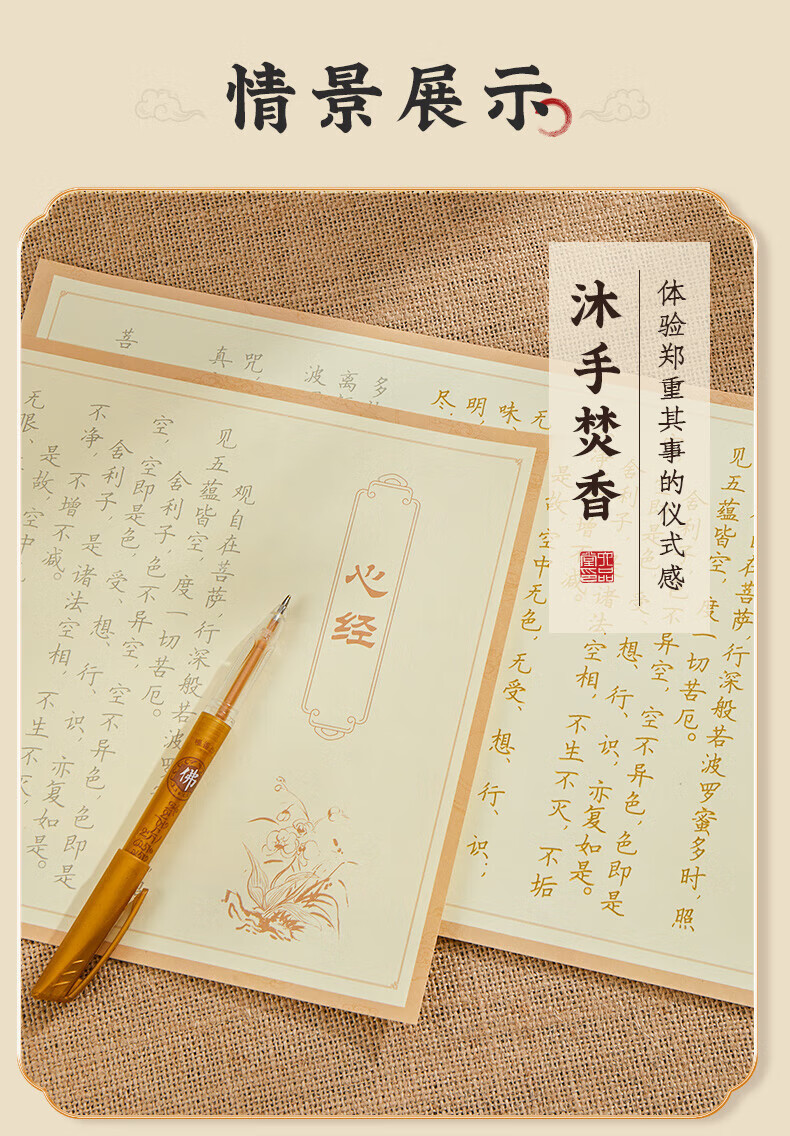 情景展示
体验郑重其事的仪式感
沐手焚香
心经
观自在菩萨，行深般若波
见五蕴皆空，度一切苦厄。
舍利子，色不异空，空不异色，色即是
空，空即是色，受、想、行、识，亦复如是。
舍利子，是诸法空相，不生不灭，
不净，不增不减。
是故，空中
无眼、
佛
在菩萨，行深般若波罗蜜多时，照
见五蕴皆空，度一切苦厄。
舍利子，不异空，空不异色，色即是
想、行、识，亦复如是。
诸法空相，不生不灭，不垢
减。
是故，空中无色，无受、想、行、识；
无
味
明，
尽，
多
离
波
咒，
真
菩